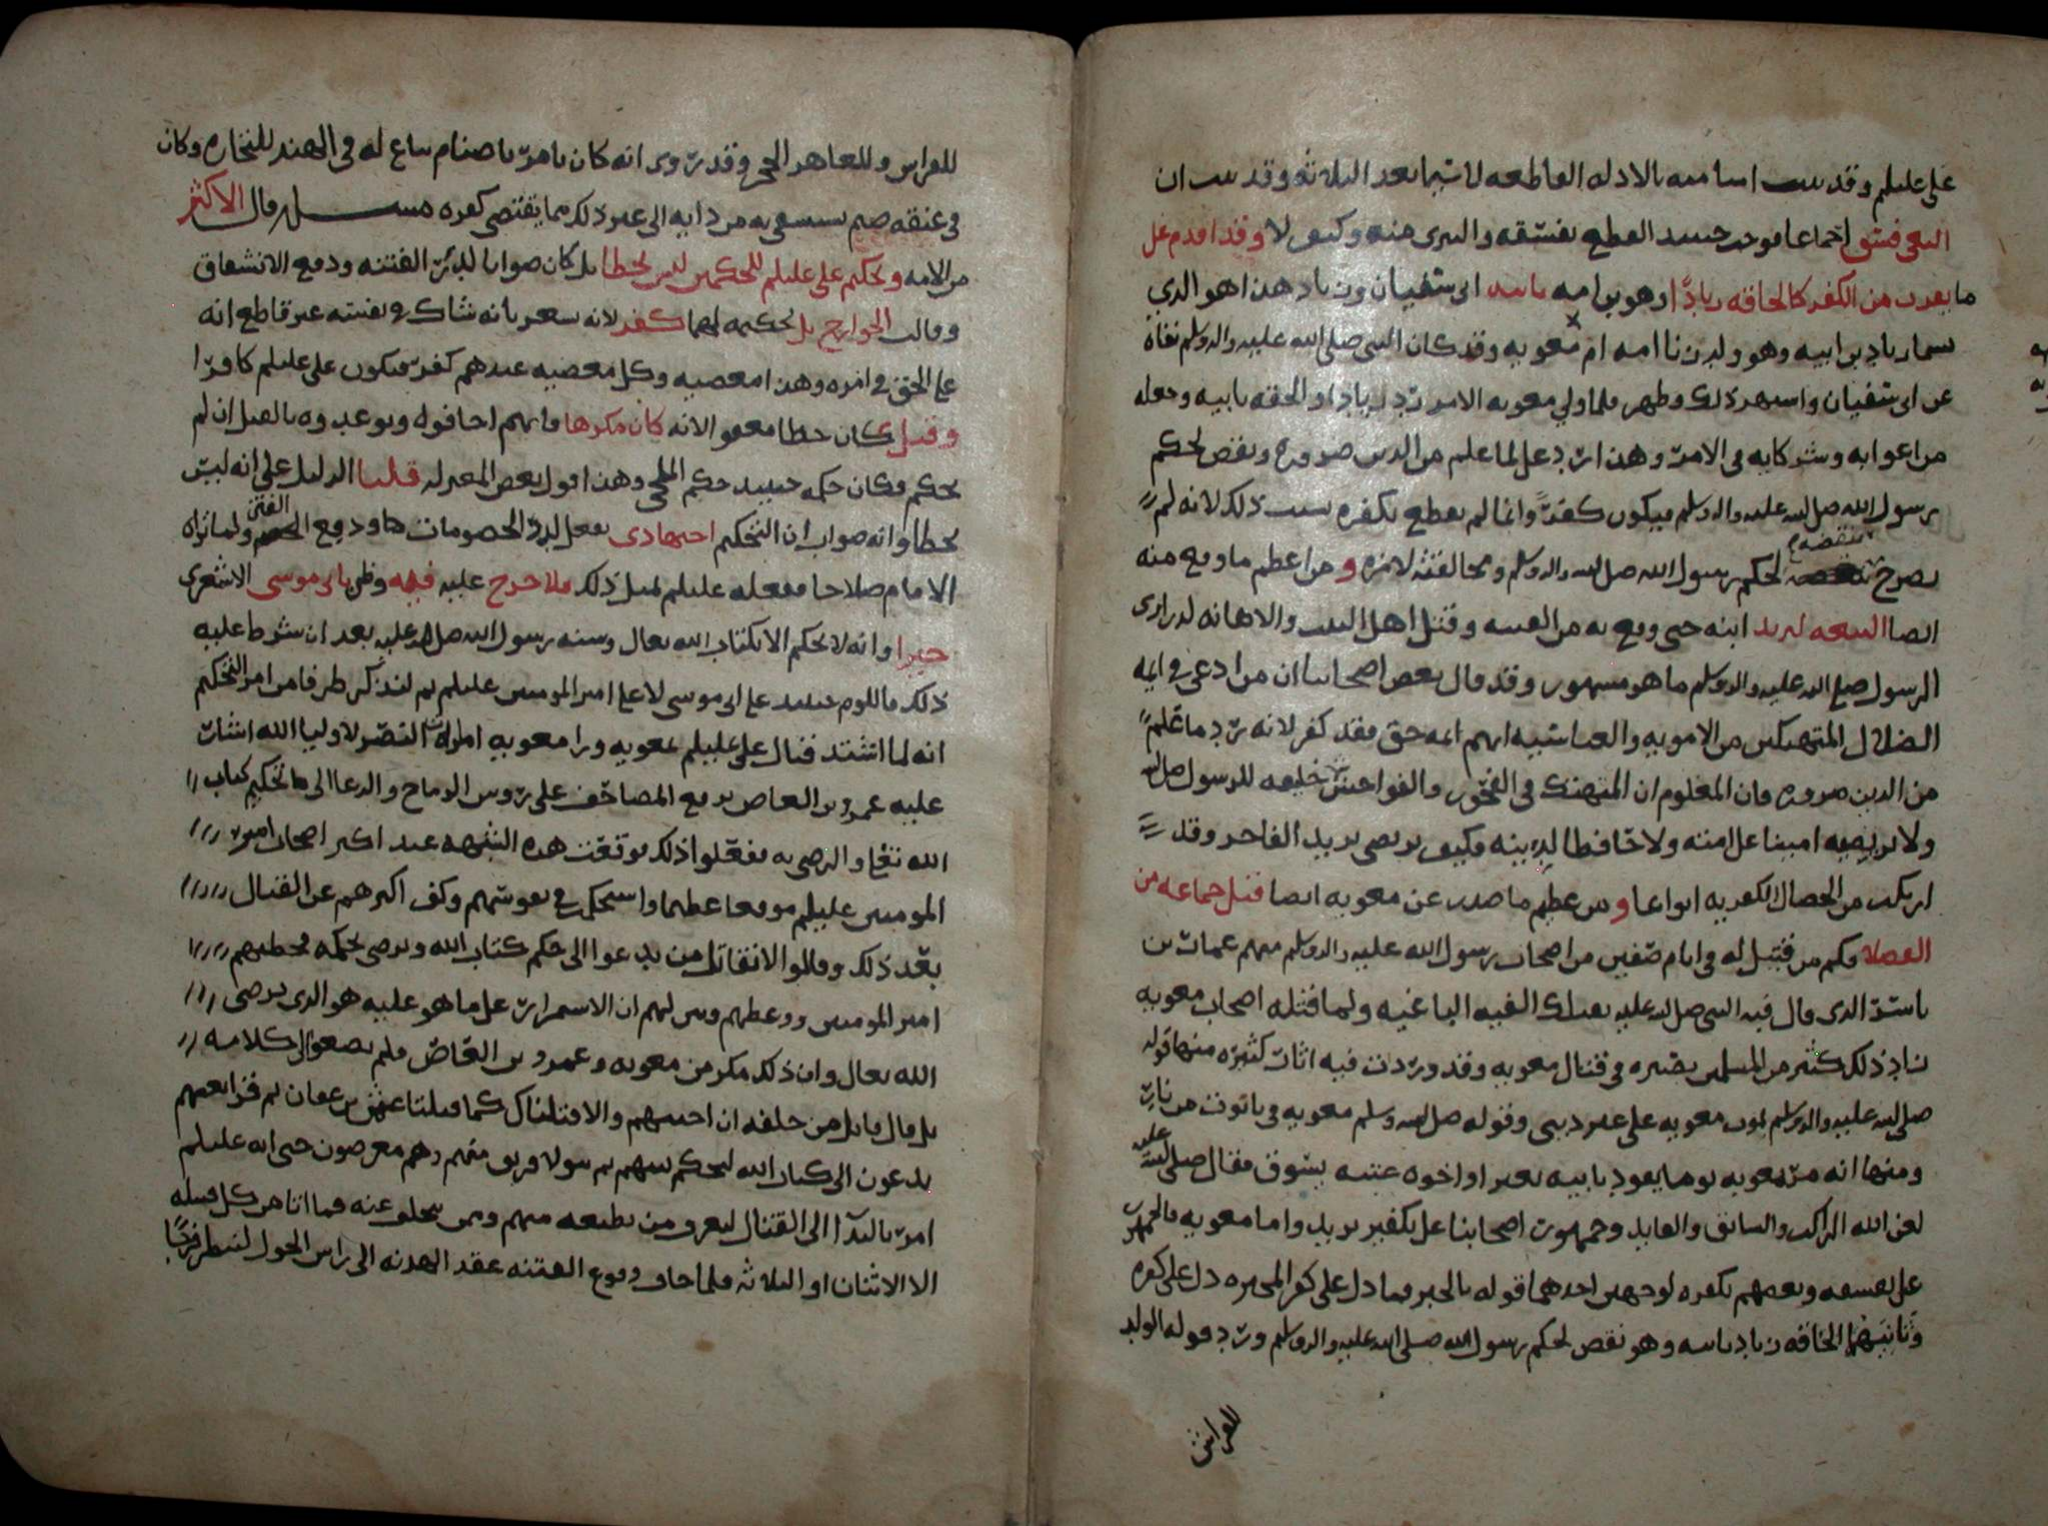 على عليلم وقد ثبت امامته بالادله القاطعه لا سيما بعد الثلاثه وقد ثبت ان
البغي فسق اجماعا فوجب حينئذ القطع بفسقه والتبرى منه وكيف لا وقد اقدم على
ما يقرب من الكفر كالحاقه زيادا وهو بن امه بابيه ابى سفيان وزياد هذا هو الذي
يسما زياد بن ابيه وهو ولد زنا امه ام معويه وقد كان النبى صلى الله عليه واله وسلم نفاه
عن ابى سفيان واشتهر ذلك وظهر فلما ولي معويه الامر رد زيادا والحقه بابيه وجعله
من اعوانه وشركايه فى الامر وهذا رد على لما علم من الدين ضروره ونقض لحكم
رسول الله صلى الله عليه واله وسلم فيكون كفرًا وانما لم يقطع بكفره بسبب ذلك لانه لم
يصرح بنقضه لحكم رسول الله صلى الله واله وسلم ومخالفته لامره ومن اعظم ما وقع منه
ايضا البيعه ليزيد ابنه حتى وقع به من الفتنه وقتل اهل البيت والاهانه لذرارى
الرسول صلى الله عليه واله وسلم ما هو مشهور وقد قال بعض اصحابنا ان من ادعى فى ايمه
الضلال المتهتكين من الامويه والعباسيه انهم ائمه حق فقد كفر لانه رد ما علم
من الدين ضروره فان المعلوم ان المتهتك فى الفجور والفواحش خليفه للرسول صلى الله
ولا يرتضيه امينا على امته ولا حافظا لدينه فكيف يرتضى يزيد الفاجر وقد
ارتكب من الخصال الكفريه انواعا ومن عظيم ما صدر عن معويه ايضا قتل جماعه من
الفضلا فكم من قتيل له فى ايام صفين من اصحاب رسول الله عليه واله وسلم منهم عمار بن
ياسر الذى قال فيه النبى صلى الله عليه تقتلك الفئه الباغيه ولما قتله اصحاب معويه
زاد ذلك كثير من المسلمين بصيره فى قتال معويه وقد وردت فيه اثار كثيره منها قوله
صلى الله عليه واله وسلم يموت معويه على غير دينى وقوله صلى الله وسلم معويه فى تابوت من نار
ومنها انه مر معويه يوما يقود بابيه بعيرا واخوه عتبه يسوق فقال صلى الله عليه
لعن الله الراكب والسائق والقايد وجمهور اصحابنا على تكفير يزيد واما معويه فالجمهور
على تفسيقه وبعضهم يكفره لوجهين احدهما قوله بالجبر فما دل على كفر المجبره دل على كفره
وثانيهما الحاقه زياد بابيه وهو نقض لحكم رسول الله صلى الله عليه واله وسلم ورد قوله الولد
للفراش
للفراش وللعاهر الحجر وقد روى انه كان يامر باصنام تباع له فى الهند للتجاره وكان
فى عنقه صنم يستسقى به من دايه الى غير ذلك مما يقتضى كفره مسئله قال الاكثر
من الامه وتحكيم على عليلم للحكمين ليس بخطا بل كان صوابا لدرء الفتنه ودفع الانشقاق
وقالت الخوارج بل تحكيمه لهما كفر لانه يشعر بانه شاك فى نفسه غير قاطع انه
على الحق فى امره وهذا معصيه وكل معصيه عندهم كفر فيكون على عليلم كافرا
وقيل كان خطا معفوا لانه كان مكرها فانهم اخافوه وتوعدوه بالقتل ان لم
يحكم فكان حكمه حينئذ حكم الملجى وهذا قول بعض المعتزله قلنا الدليل على انه ليس
بخطا وانه صواب ان التحكيم اجتهادى يفعل لدرء الخصومات هاودفع الفتن ولما يراه
الامام صلاحا ففعله عليلم لمثل ذلك فلا حرج عليه فيه وظن بابى موسى الاشعرى
خيرا وانه لا يحكم الا بكتاب الله تعالى وسنه رسول الله صلى الله عليه بعد ان شرط عليه
ذلك فاللوم حينئذ على ابى موسى لا على امير المومنين عليلم ثم لنذكر طرفا من امر التحكيم
انه لما اشتد قتال على عليلم لمعويه ورا معويه امارات النصر لاوليا الله اشار
عليه عمرو بن العاص برفع المصاحف على روس الرماح والدعا الى تحكيم كتاب
الله تعالى والرضى به ففعلوا ذلك فوقعت هذه الشبهه عند اكثر اصحاب امير
المومنين عليلم موقعا عظيما واستحكمت فى نفوسهم وكف اكثرهم عن القتال
بعد ذلك وقالوا لا نقاتل من يدعوا الى حكم كتاب الله ويرضى بحكمه فخطبهم
امير المومنين ووعظهم وبين لهم ان الاستمرار على ما هو عليه هو الذى يرضى
الله تعالى وان ذلك مكر من معويه وعمرو بن العاص فلم يصغوا الى كلامه
بل قال قايل من خلفه ان اجبتهم والا قتلناك كما قتلنا عثمن بن عفان ثم قرا بعضهم
يدعون الى كتاب الله ليحكم بينهم ثم يتولا فريق منهم وهم معرضون حتى انه عليلم
امر بالندا الى القتال ليعرف من يطيعه منهم ومن يتخلف عنه فما اتا من كل قبيله
الا الاثنان او الثلاثه فلما خاف وقوع الفتنه عقد الهدنه الى راس الحول لينتظر فرجا